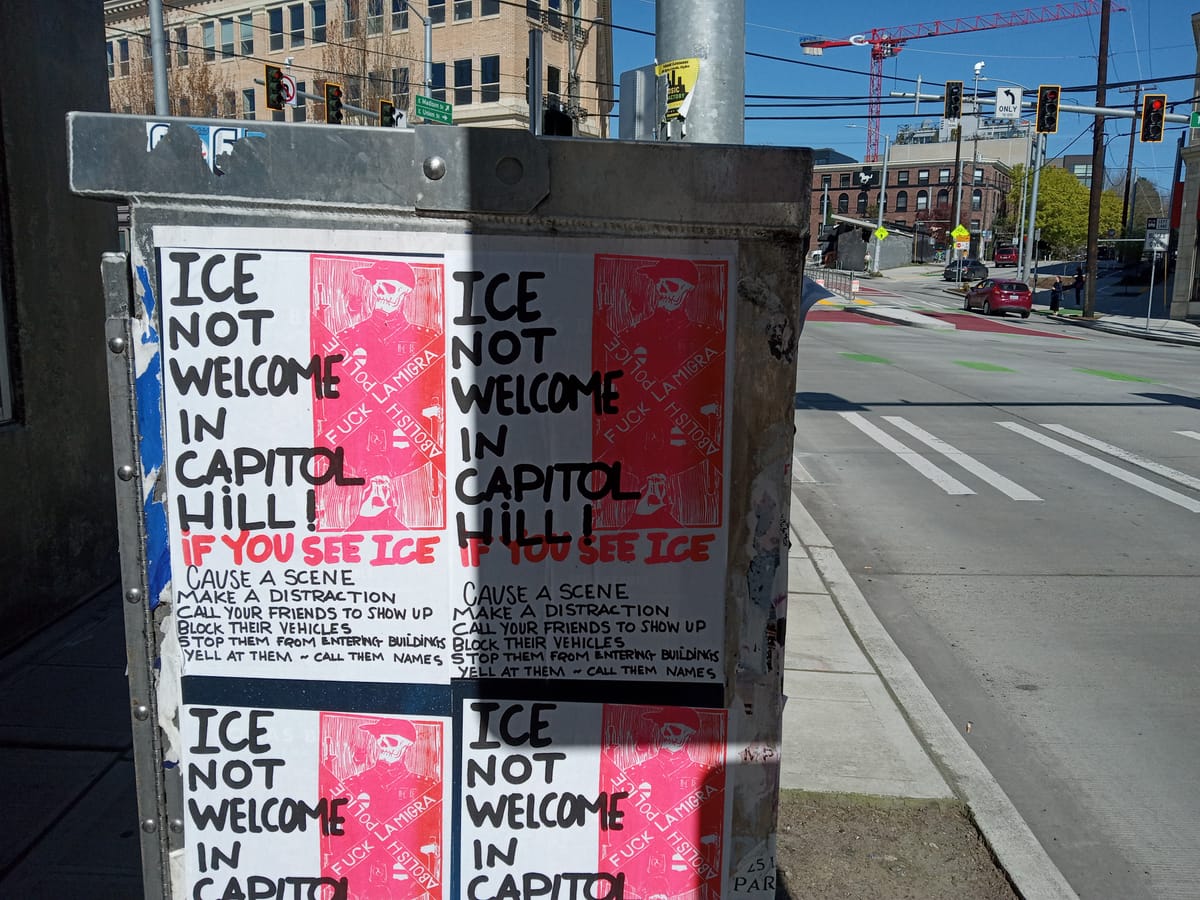 E Madison St
E Union St
ONLY
ICE
NOT
WELCOME
IN
CAPITOL
HILL!
POLICE
FUCK LA MIGRA
ABOLISH
IF YOU SEE ICE
CAUSE A SCENE
MAKE A DISTRACTION
CALL YOUR FRIENDS TO SHOW UP
BLOCK THEIR VEHICLES
STOP THEM FROM ENTERING BUILDINGS
YELL AT THEM ~ CALL THEM NAMES
ICE
NOT
WELCOME
IN
CAPITOL
HILL!
POLICE
FUCK LA MIGRA
ABOLISH
IF YOU SEE ICE
CAUSE A SCENE
MAKE A DISTRACTION
CALL YOUR FRIENDS TO SHOW UP
BLOCK THEIR VEHICLES
STOP THEM FROM ENTERING BUILDINGS
YELL AT THEM ~ CALL THEM NAMES
ICE
NOT
WELCOME
IN
CAPITOL
POLICE
FUCK LA MIGRA
ABOLISH
ICE
NOT
WELCOME
IN
CAPITOL
POLICE
FUCK LA MIGRA
ABOLISH
251
PAR